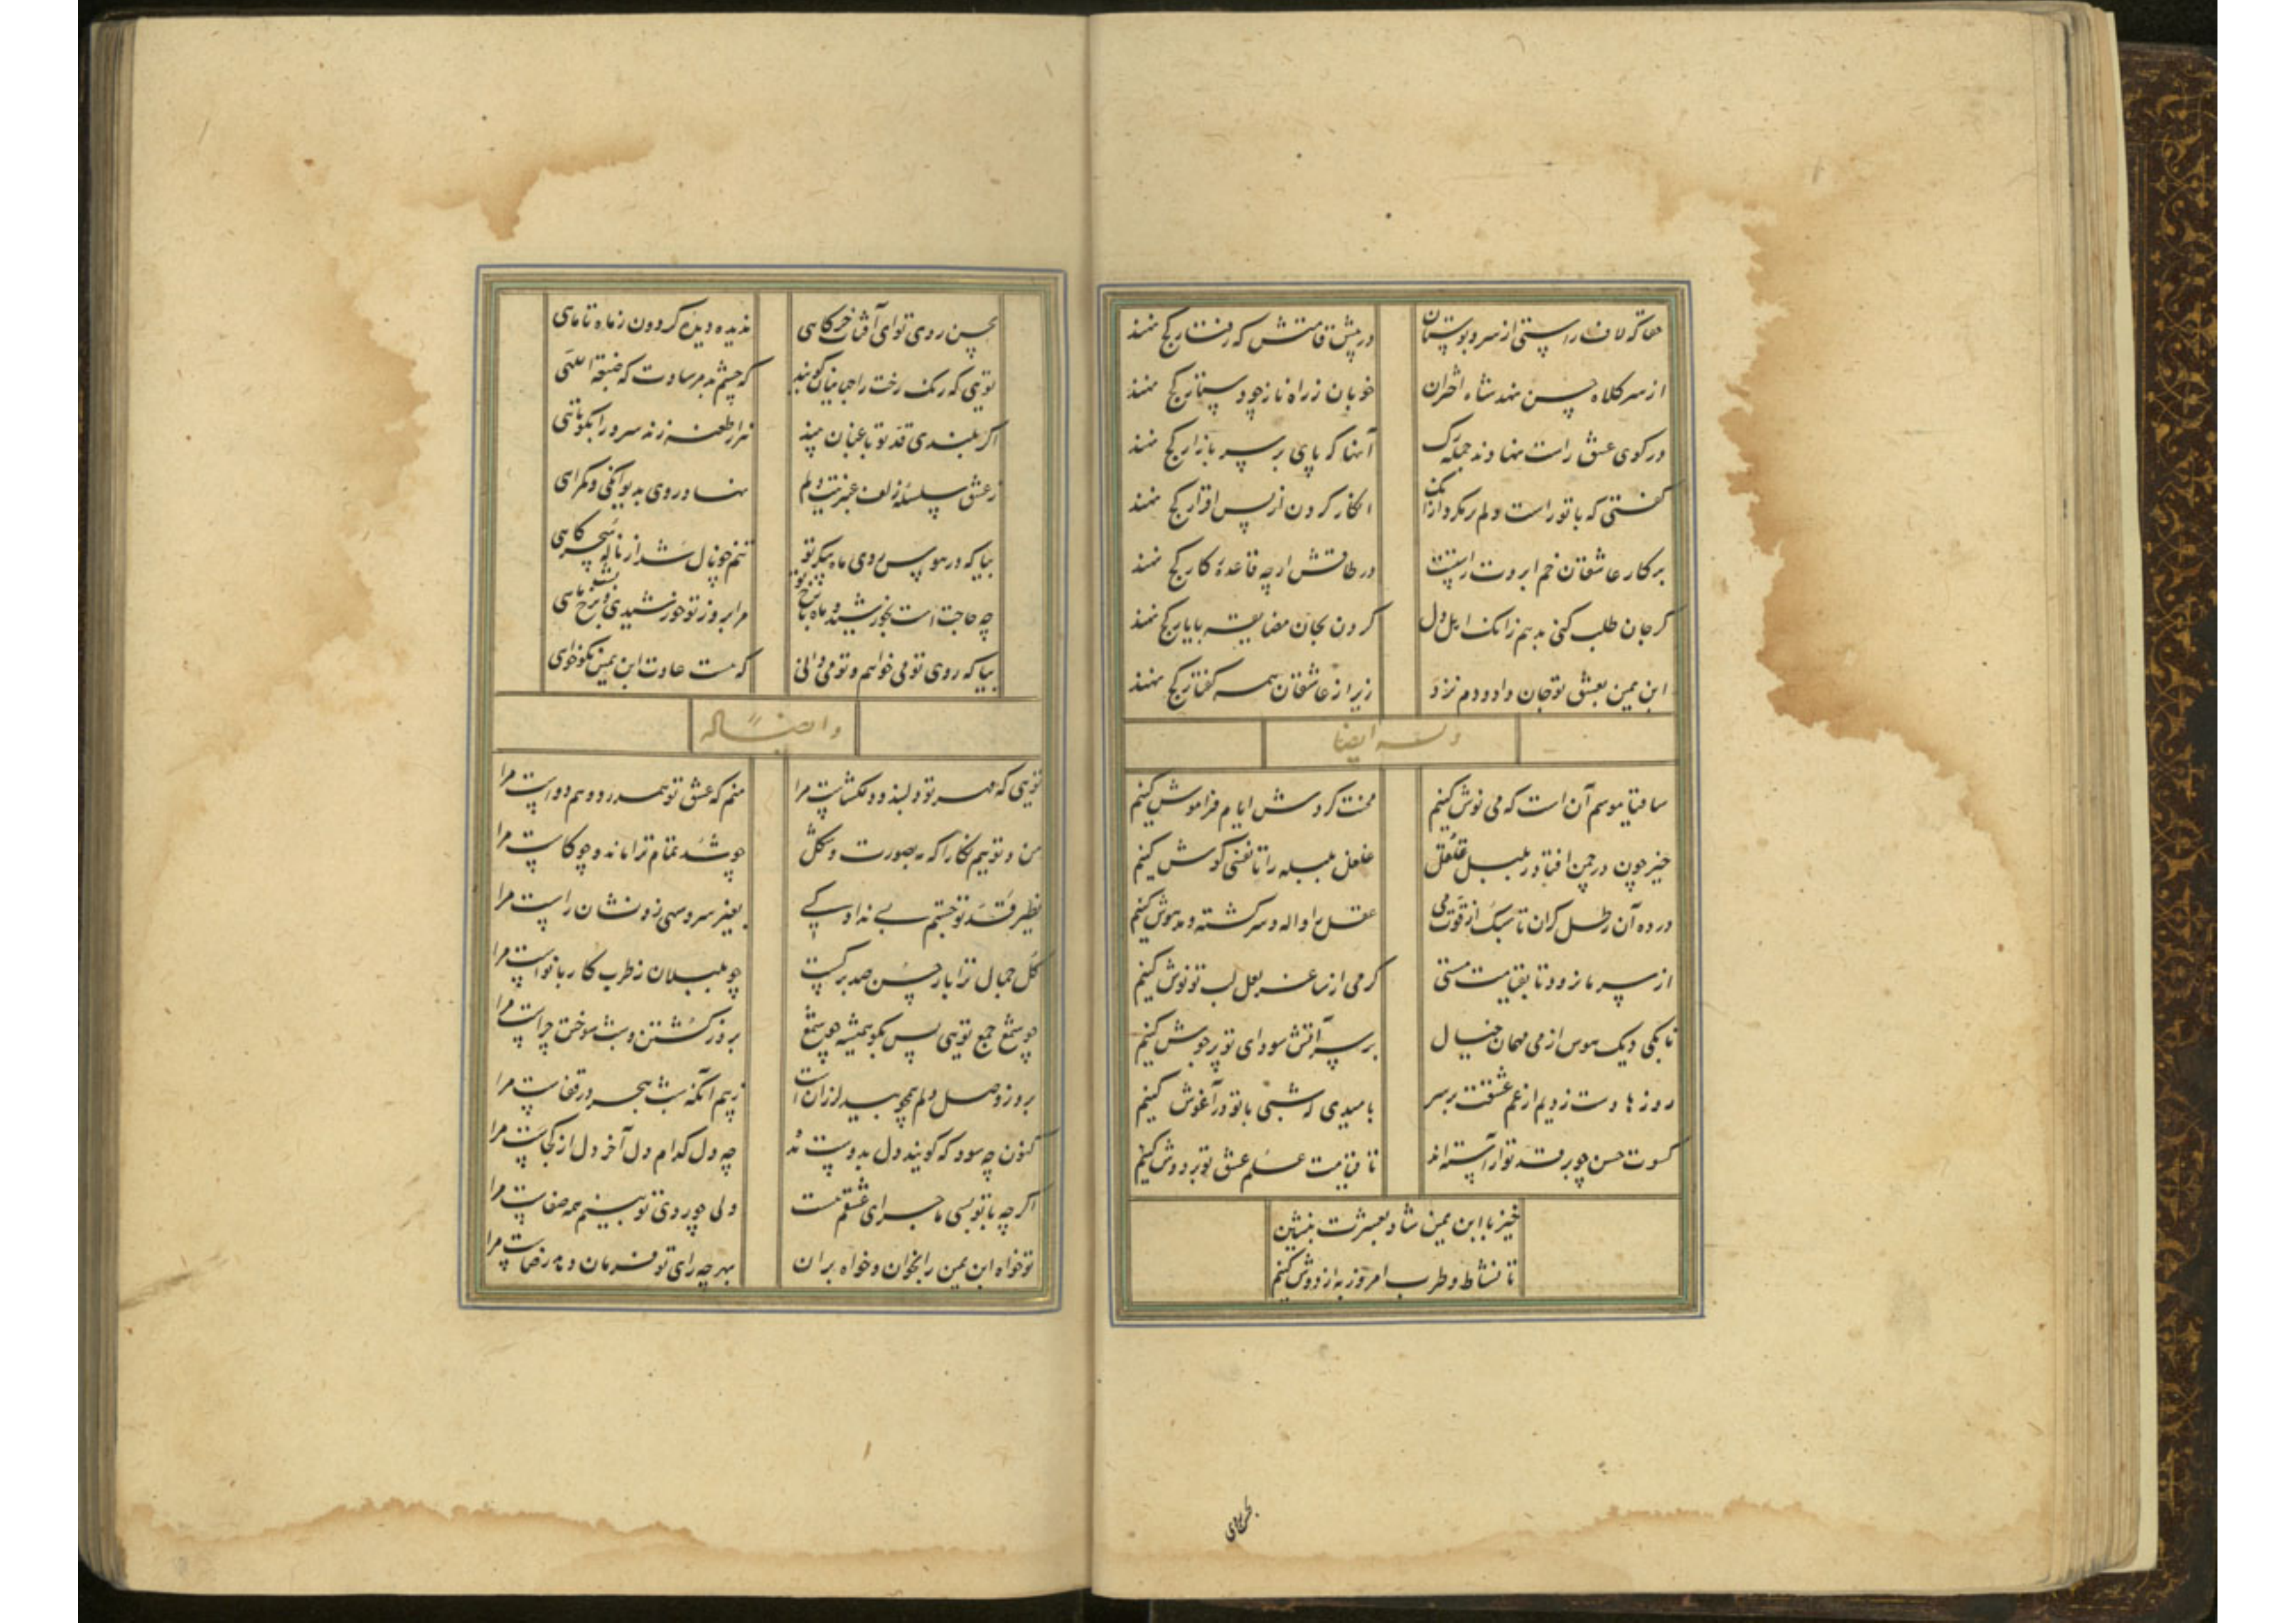 حقا که لاف راستی از سرو بوستان در پیش قامتش که رفتار کج نهند
از سر کلاه حسن نهند شاه اختران خوبان ز راه ناز چو دستار کج نهند
در کوی عشق راست نهادند جمله آنها که پای بر سر بازار کج نهند
گفتی که با تو راست دلم انکار کردن از پس اقرار کج نهند
بر کار عاشقان خم ابروت راستست در طاقتش ارچه قاعدهٔ کار کج نهند
گر جان طلب کنی بدهم زانک اهل دل کردن بجان مضایقه با یار کج نهند
ابن یمین بعشق تو جان داد و دم نزد زیرا ز عاشقان همه گفتار کج نهند
وله ایضا
ساقیا موسم آن است که می نوش کنیم محنت گردش ایام فراموش کنیم
خیز چون در چمن افتاد ز بلبل غلغل غلغل بلبله را تا نفسی گوش کنیم
در ده آن رطل گران تا سبک از قوت می عقل را واله و سرگشته و مدهوش کنیم
از سر ما نرود تا بقیامت مستی گر می از ساغر لعل لب تو نوش کنیم
تا بکی دیک هوس از می خیال بر سر آتش سودای تو پر جوش کنیم
روزها دست زدیم از غم عشقت بر سر بامیدی که شبی با تو در آغوش کنیم
کسوت حسن چو بر قد تو آراسته‌اند تا قیامت علم عشق تو بر دوش کنیم
خیز با ابن یمین شاد بعشرت بنشین
تا نشاط و طرب امروز به از دوش کنیم
بحسن روی
بحسن روی تو ای آفتاب خرگاهی ندیده دیدهٔ گردون ز ماه تا ماهی
تویی که رنگ رخت را که چشم بد مرسادت که صبغة اللهی
اگر بلندی قد تو باغبان بیند هزار طعنه زند سرو را بکوتاهی
ز عشق سلسلهٔ زلف عنبرینت دلم نهاد روی بدیوانگی و گمراهی
بیا که در هوس روی ماه پیکر تو تنم چو نال شد از نالهٔ سحرگاهی
چه حاجت است بخورشید و ماه با رخ تو مرا بروز تو خورشیدی و بشب ماهی
بیا که روی تو می خواهم و تو می‌دانی که هست عادت ابن یمین نکوخواهی
و ایضا له
تویی که مهر تو دلبند و دلگشاست مرا منم که عشق تو هم درد و هم دواست مرا
من و توییم نگارا که به صورت و شکل چو شد تمام ترا ماند و چو کاست مرا
نظیر قد تو جستم بسی نداد کسی بغیر سرو سهی زو نشان راست مرا
گل جمال ترا بار حسن صد برگست چو بلبلان ز طرب کار با نواست مرا
چو شمع جمع تویی پس بگو همیشه چو شمع بروز کشتن و شب سوختن چراست مرا
بروز وصل دلم همچو بید لرزان است ز بیم آنکه شب هجر در قفاست مرا
کنون چه سود که گویند دل بدوست مده چه دل کدام دل آخر دل از کجاست مرا
اگر چه با تو بسی ماجرای عشقم هست ولی چو روی تو بینم همه صفاست مرا
تو خواه ابن یمین را بخوان و خواه بران بهر چه رای تو فرمان دهد رضاست مرا